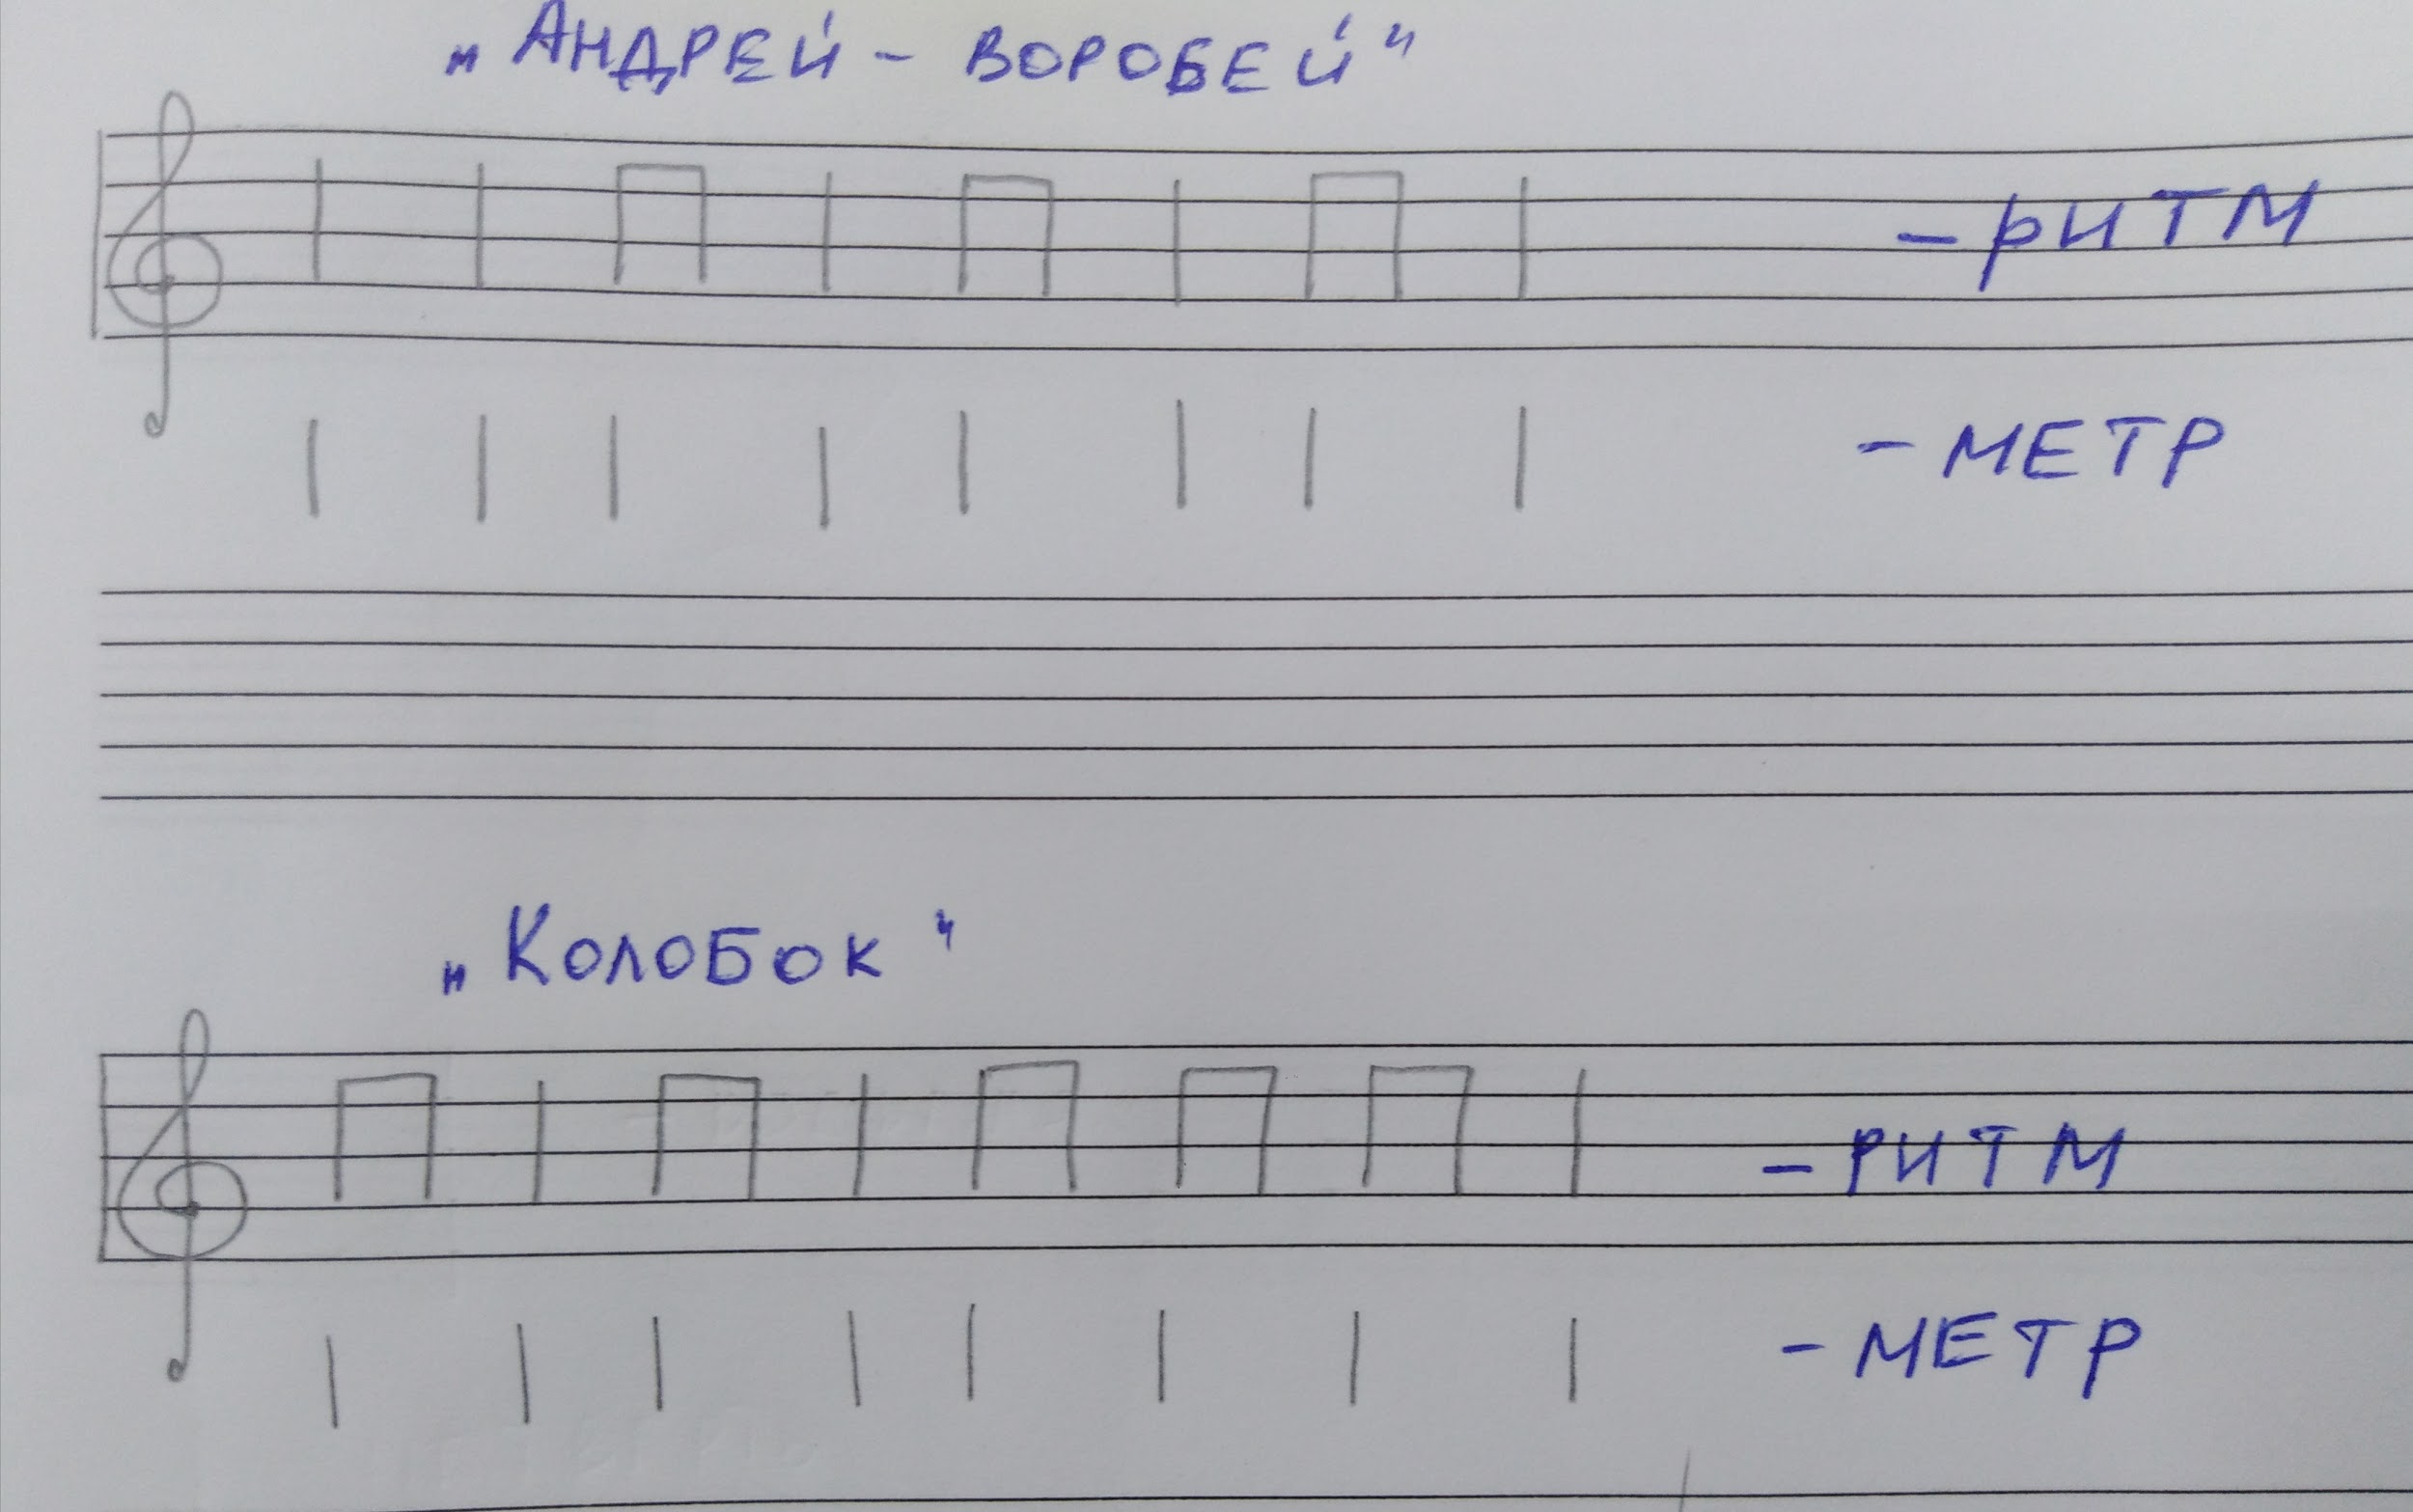 „Андрей - воробей"
- ритм
- метр
„Колобок"
- ритм
- метр